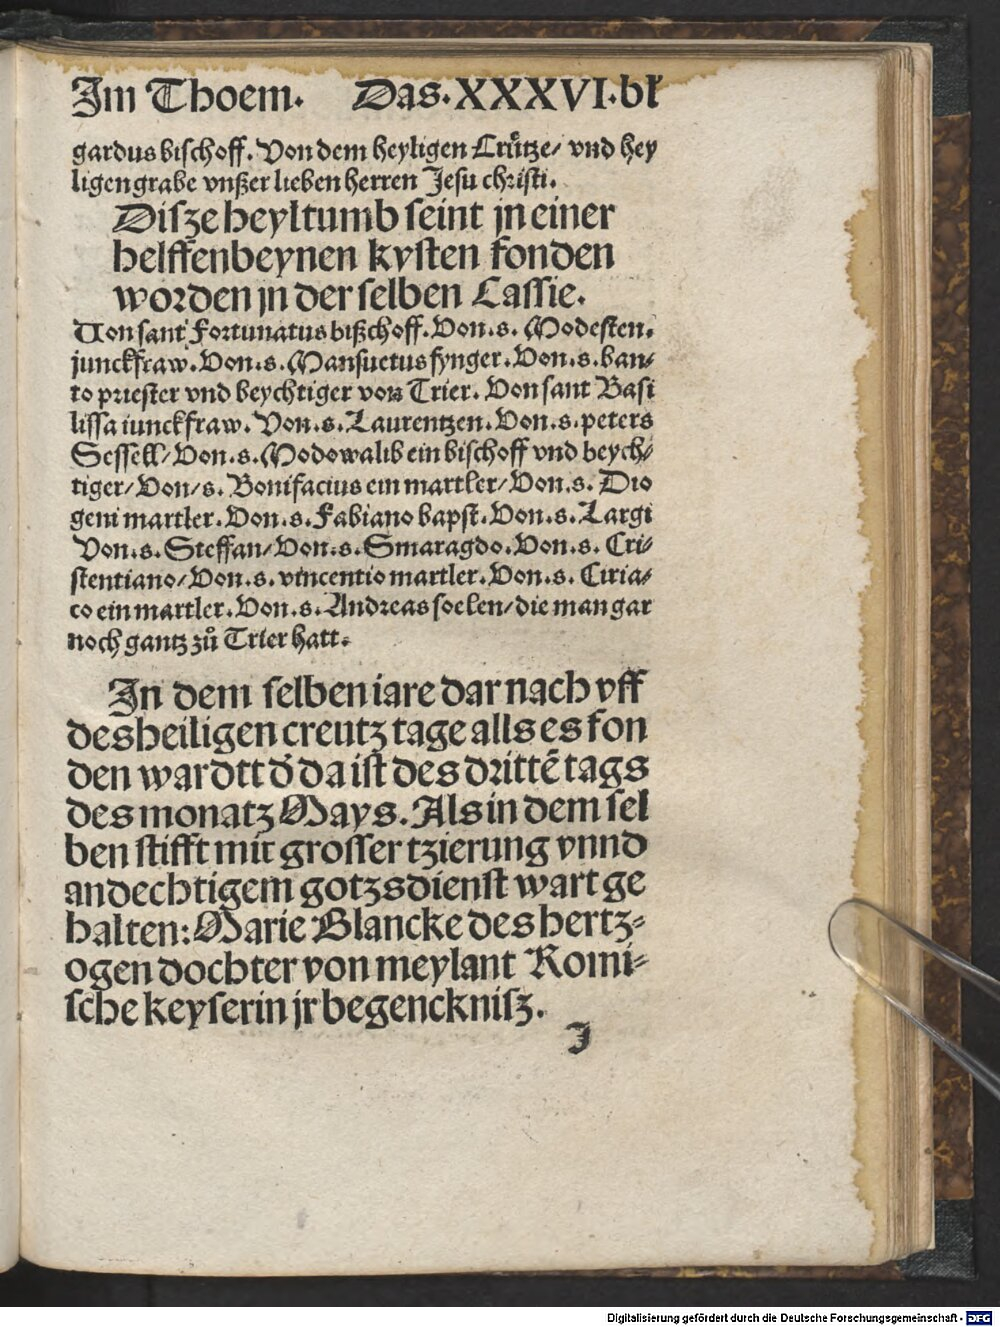 Im Thoem. Das.XXXVI.bl
gardus bischoff. Von dem heyligen Crůtze/ vnd hey
ligen grabe vnßer lieben herren Jesu christi.
Disze heyltumb seint jn einer
helffenbeynen kysten fonden
worden jn der selben Cassie.
Von sant Fortunatus bißchoff. Von.s. Modesten.
junckfraw. Von.s. Mansuetus fynger. Von.s. ban/
to priester vnd beychtiger von Trier. Von sant Basi
lissa iunckfraw. Von.s. Laurentzen. Von.s. peters
Sessell/ Von.s. Modowalib ein bischoff vnd beych/
tiger/ Von/s. Bonifacius ein martler/ Von.s. Dio
geni martler. Von.s. Fabiano bapst. Von.s. Largi
Von.s. Steffan/ Von.s. Smaragdo. Von.s. Cri/
stentiano/ Von.s. vincentio martler. Von.s. Ciria/
co ein martler. Von.s. Andreas soelen/ die man gar
noch gantz zů Trier hatt.
In dem selben iare dar nach vff
des heiligen creutz tage alls es fon
den wardtt d̕ da ist des drittē tags
des monatz Mays. Als in dem sel
ben stifft mit grosser tzierung vnnd
andechtigem gotzsdienst wart ge
halten: Marie Blancke des hertz-
ogen dochter von meylant Romi-
sche keyserin jr begencknisz.
J
Digitalisierung gefördert durch die Deutsche Forschungsgemeinschaft - DFG